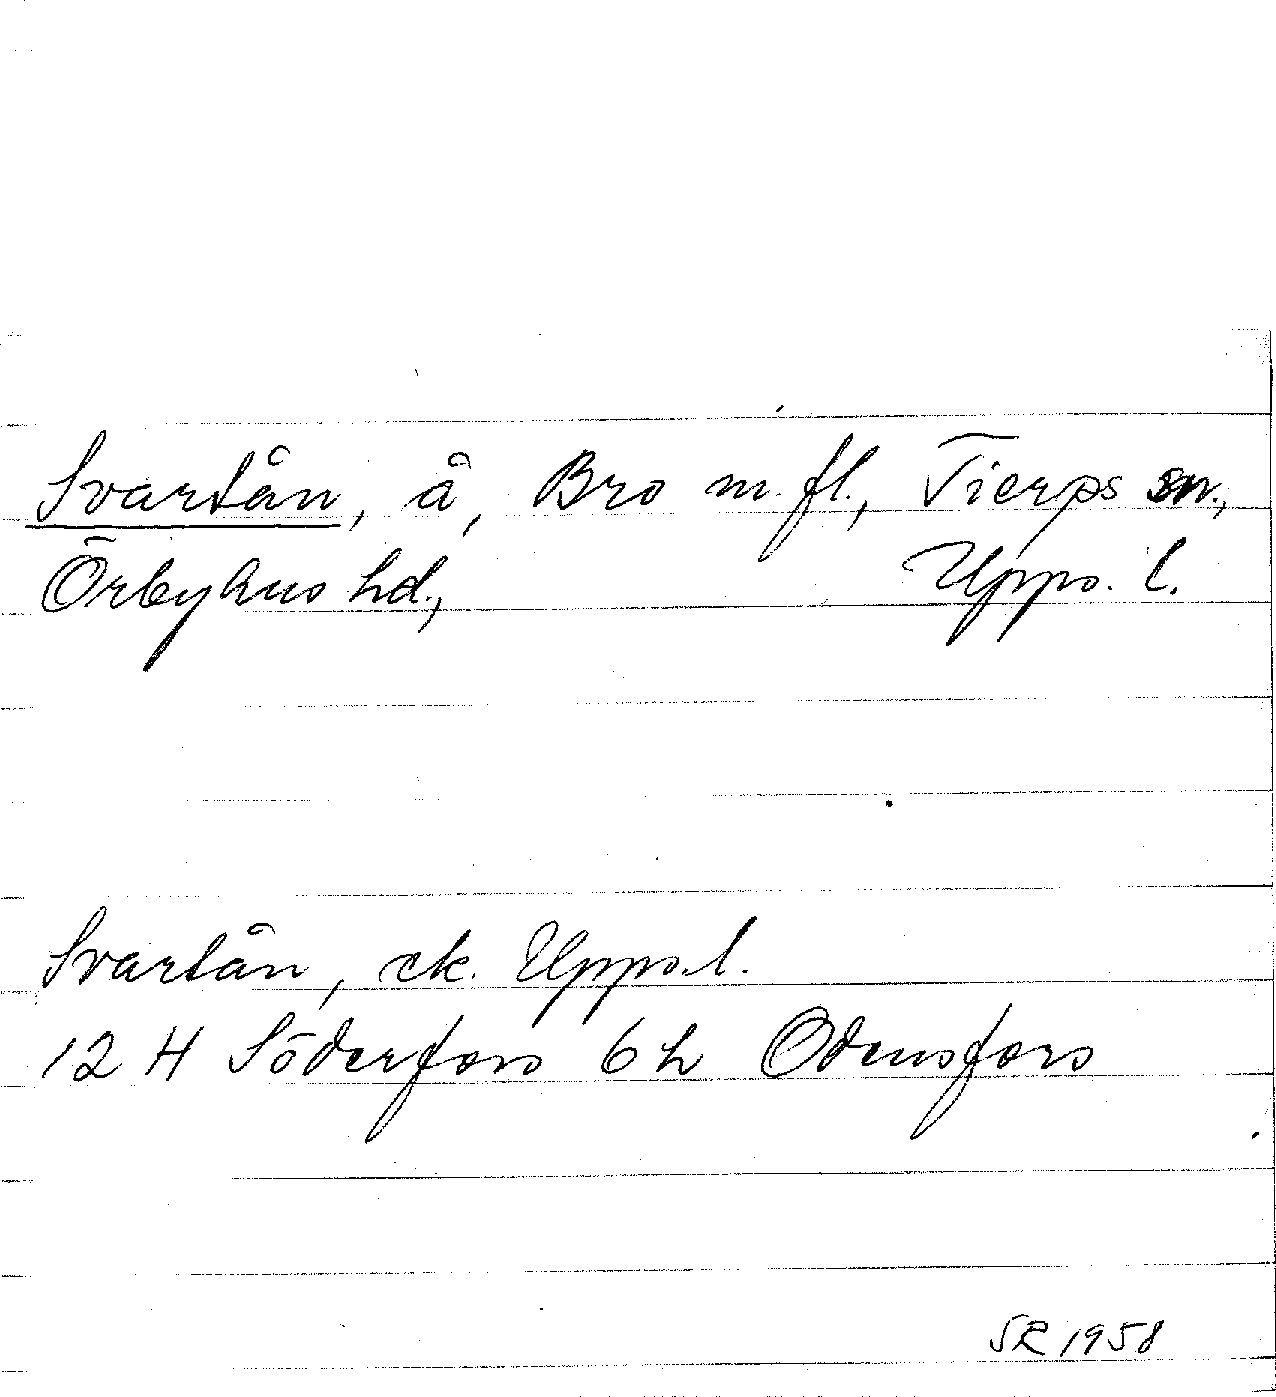 Svartån, å, Bro m.fl., Tierps sn.,
Örbyhus hd., Upps. l.
Svartån, ek. Upps.l.
12 H Söderfors 6 h Odensfors
SR 1958